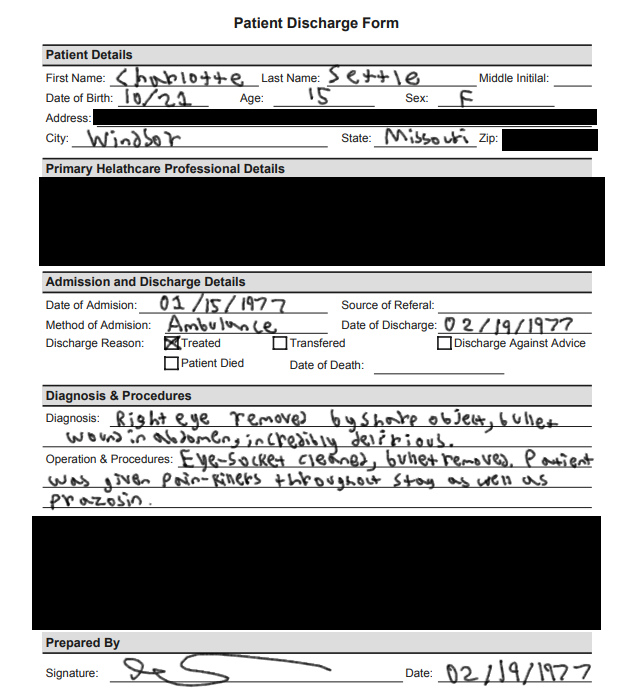 Patient Discharge Form
Patient Details
First Name: Charlotte Last Name: Settle Middle Initilal:
Date of Birth: 10/21 Age: 15 Sex: F
Address:
City: Windsor State: Missouri Zip:
Primary Helathcare Professional Details
Admission and Discharge Details
Date of Admision: 01/15/1977 Source of Referal:
Method of Admision: Ambulance Date of Discharge: 02/19/1977
Discharge Reason: Treated Transfered Discharge Against Advice
Patient Died Date of Death:
Diagnosis & Procedures
Diagnosis: Right eye removed by sharp object, bullet
wound in abdomen, incredibly delirious.
Operation & Procedures: Eye-socket cleaned, bullet removed. Patient
was given pain-killers throughout stay as well as
prazosin.
Prepared By
Signature: Date: 02/19/1977